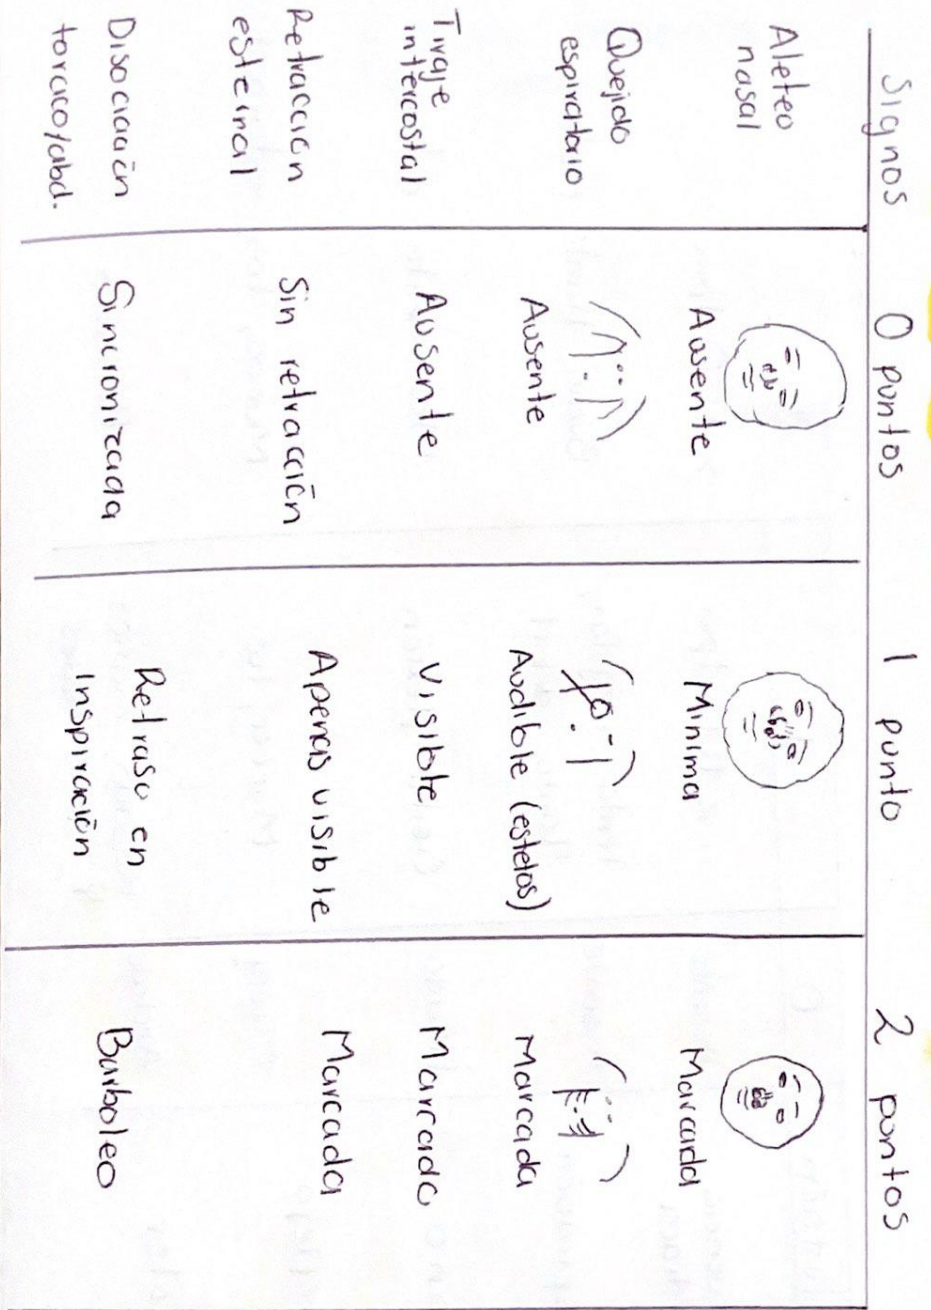 Signos 0 puntos 1 punto 2 puntos
Aleteo
nasal
Ausente Minima Marcada
Quejido
espiratorio
Ausente Audible (estetos) Marcada
Tiraje
intercostal
Ausente Visible Marcado
Retracción
esternal
Sin retracción Apenas visible Marcada
Disociación
toracoyabd.
Sincronizada Retraso en
Inspiración
Bamboleo